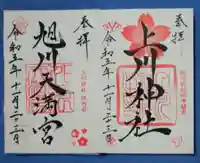 奉拝
上川神社
令和五年十一月二十三日
奉拝
旭川天満宮
令和五年十一月二十三日